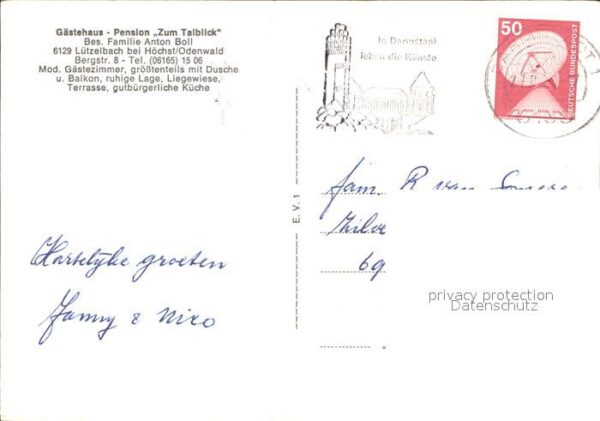 Gästehaus - Pension „Zum Talblick"
Bes. Familie Anton Boll
6129 Lützelbach bei Höchst/Odenwald
Bergstr. 8 - Tel. (06165) 15 06
Mod. Gästezimmer, größtenteils mit Dusche
u. Balkon, ruhige Lage, Liegewiese,
Terrasse, gutbürgerliche Küche
In Darmstadt
leben die Künste
50
DEUTSCHE BUNDESPOST
E. V. 1
fam. R van
69
Hartelijke groeten
Fanny & Nico
privacy protection
Datenschutz